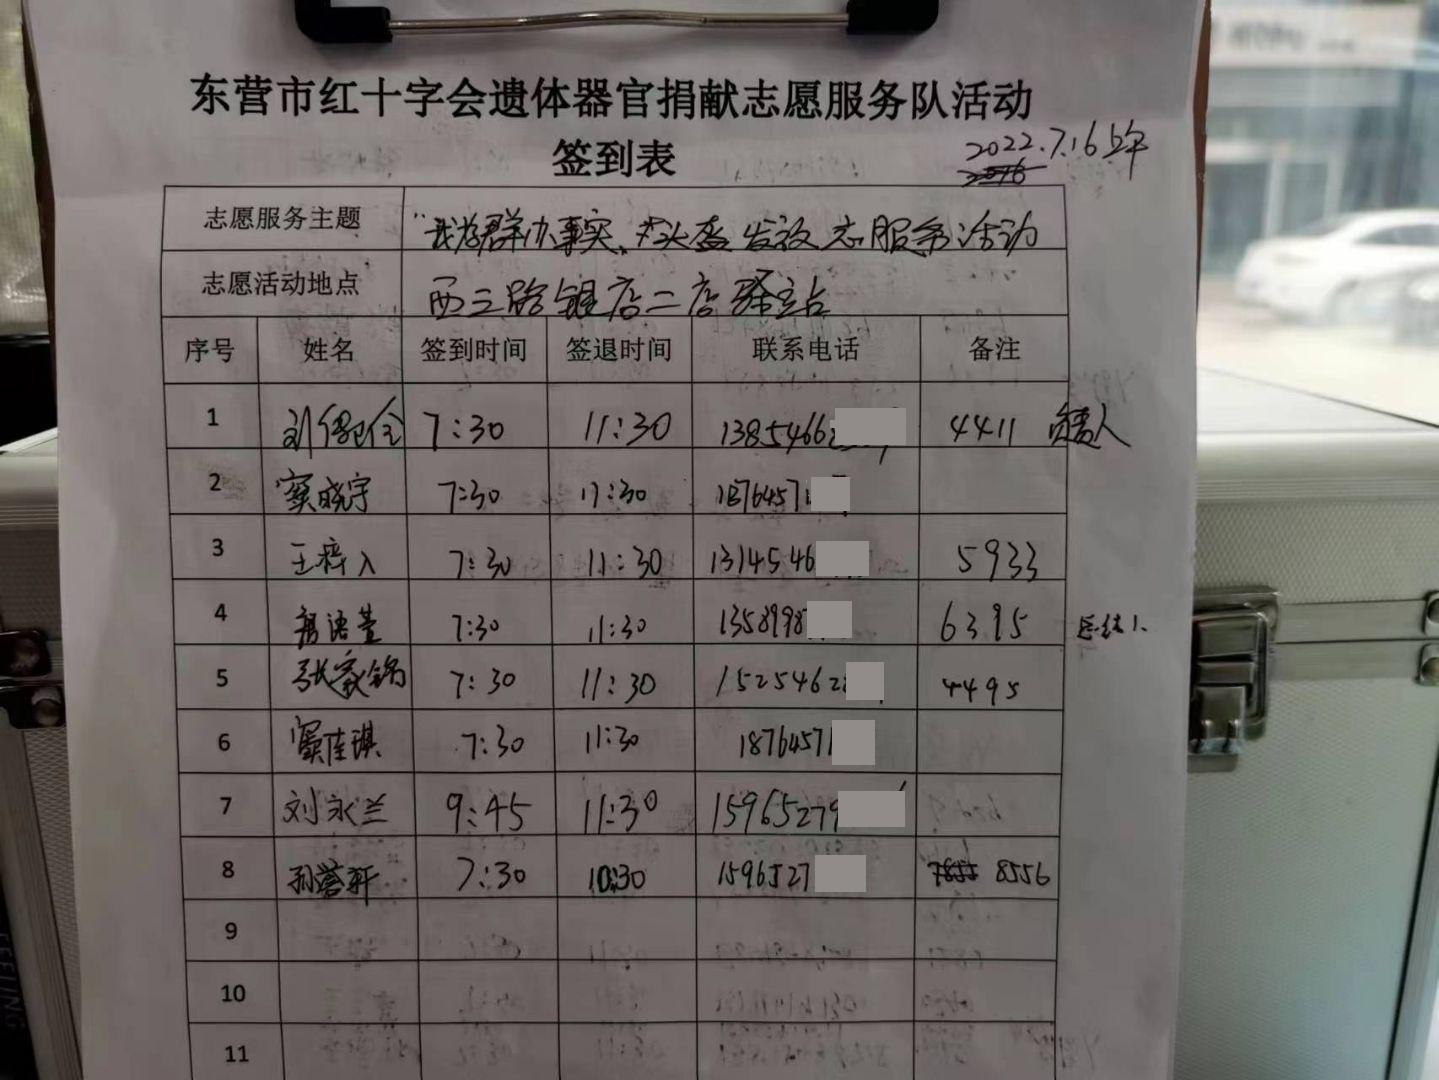 东营市红十字会遗体器官捐献志愿服务队活动
签到表
2022.7.16上午
志愿服务主题 "我为群办事实、头盔发放志服务活动
志愿活动地点 西三路银店二店驿站
序号 姓名 签到时间 签退时间 联系电话 备注
1 刘 7:30 11:30 13854662 4411 负责人
2 窦晓宇 7:30 11:30 1876457
3 王梓入 7:30 11:30 1314546 5933
4 语萱 7:30 11:30 1358998 6395 总结1.
5 张家铭 7:30 11:30 1525462 4495
6 窦佳琪 7:30 11:30 1876457
7 刘永兰 9:45 11:30 15965279
8 孙誉轩 7:30 10:30 1596527 8556
9
10
11
FEELING